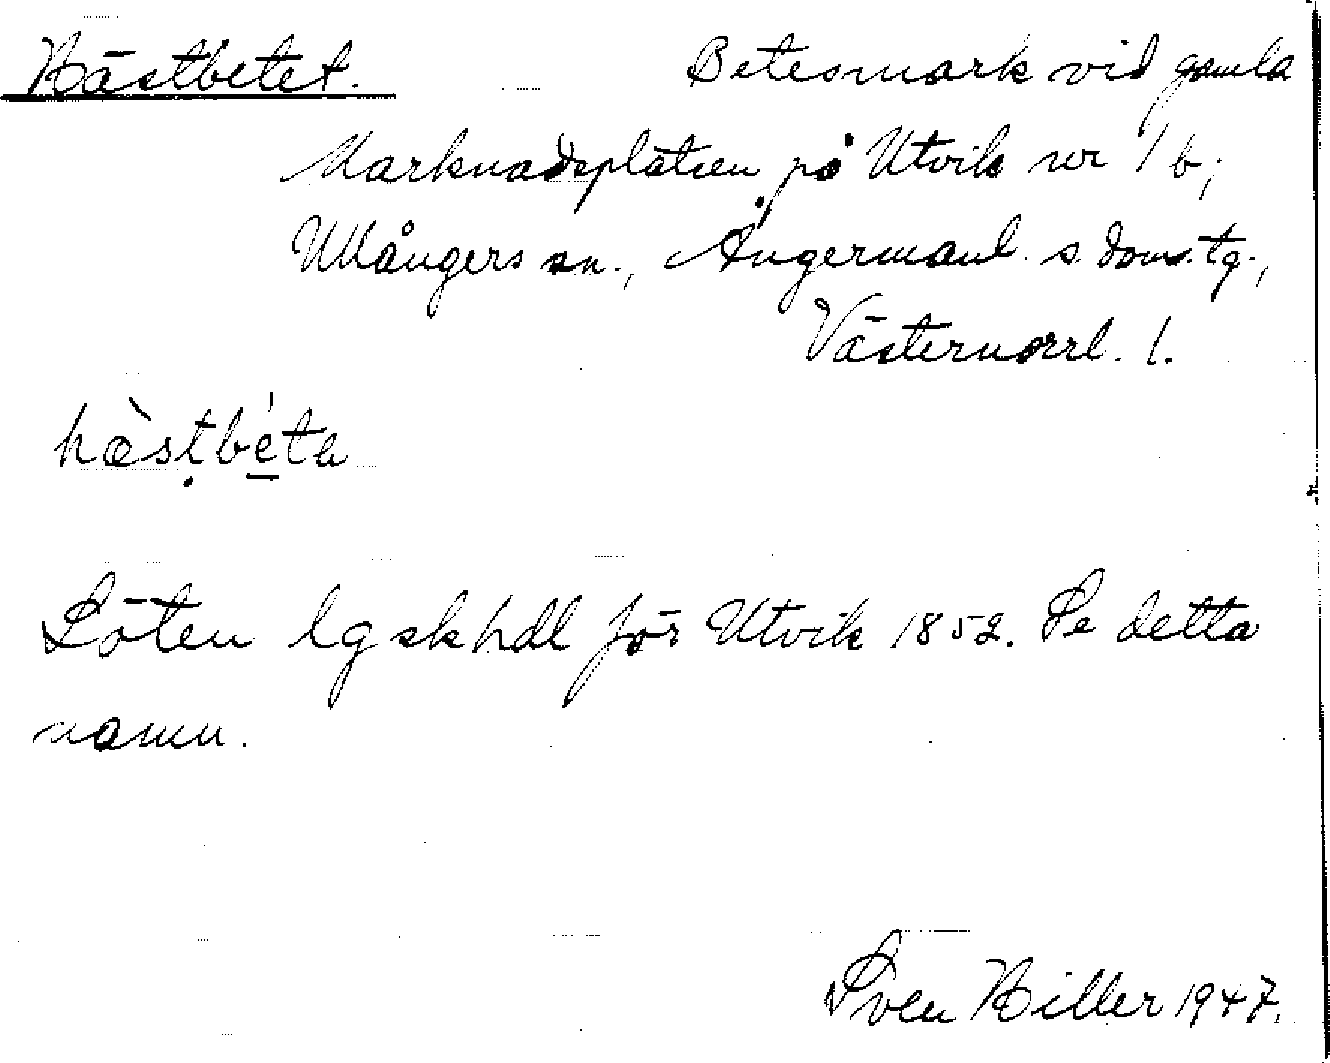 Hästbetet. Betesmark vid gamla
Marknadsplatsen på Utvik nr 1 b;
Ullångers sn., Ångermanl. s. doms. tg.,
Västernorrl. l.
hæ̀stbéta
Löten lgskhdl för Utvik 1852. Se detta
namn.
Sven Hiller 1947.